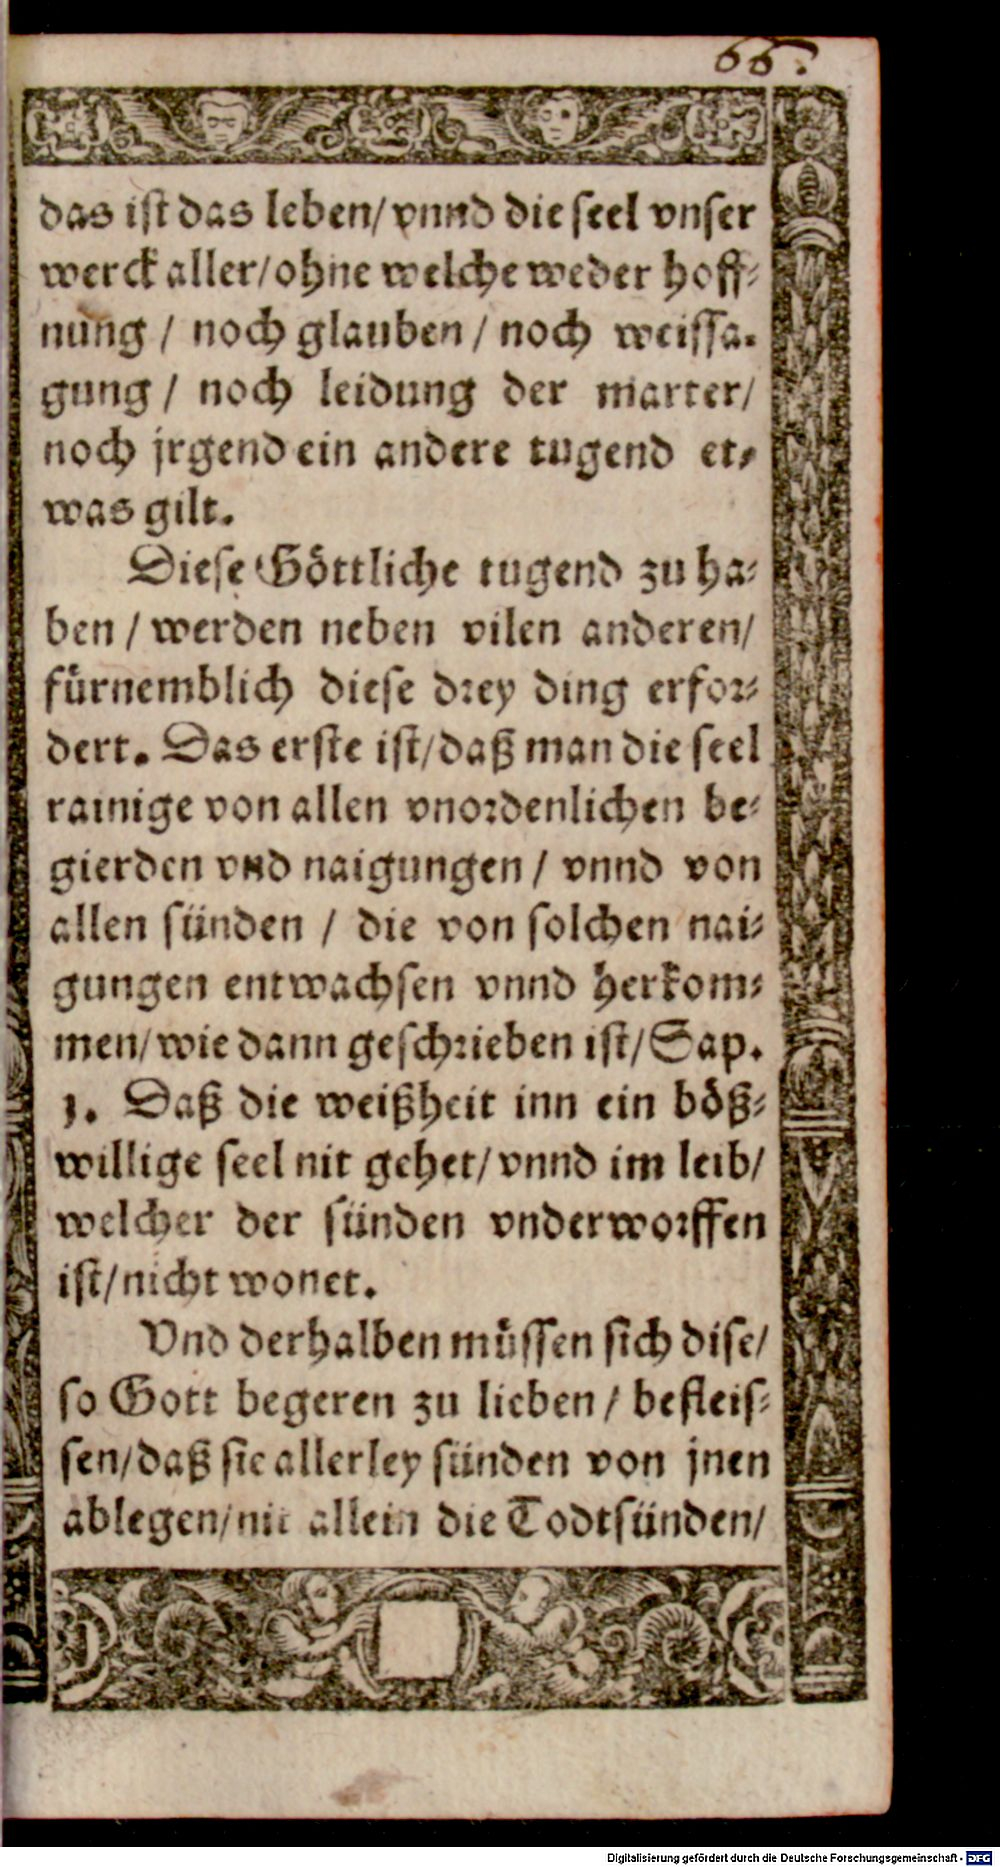 66.
das ist das leben/ vnnd die seel vnser
werck aller/ ohne welche weder hoff-
nung / noch glauben / noch weissa-
gung / noch leidung der marter/
noch jrgend ein andere tugend et-
was gilt.
Diese Göttliche tugend zu ha-
ben / werden neben vilen anderen/
fürnemblich diese drey ding erfor-
dert. Das erste ist/ daß man die seel
rainige von allen vnordenlichen be-
gierden vnd naigungen / vnnd von
allen sünden / die von solchen nai-
gungen entwachsen vnnd herkom-
men/ wie dann geschrieben ist/ Sap.
1. Daß die weißheit inn ein böß-
willige seel nit gehet/ vnnd im leib/
welcher der sünden vnderworffen
ist/ nicht wonet.
Vnd derhalben müssen sich dise/
so Gott begeren zu lieben / befleis-
sen/ daß sie allerley sünden von jnen
ablegen/ nit allein die Todtsünden/
Digitalisierung gefördert durch die Deutsche Forschungsgemeinschaft - DFG